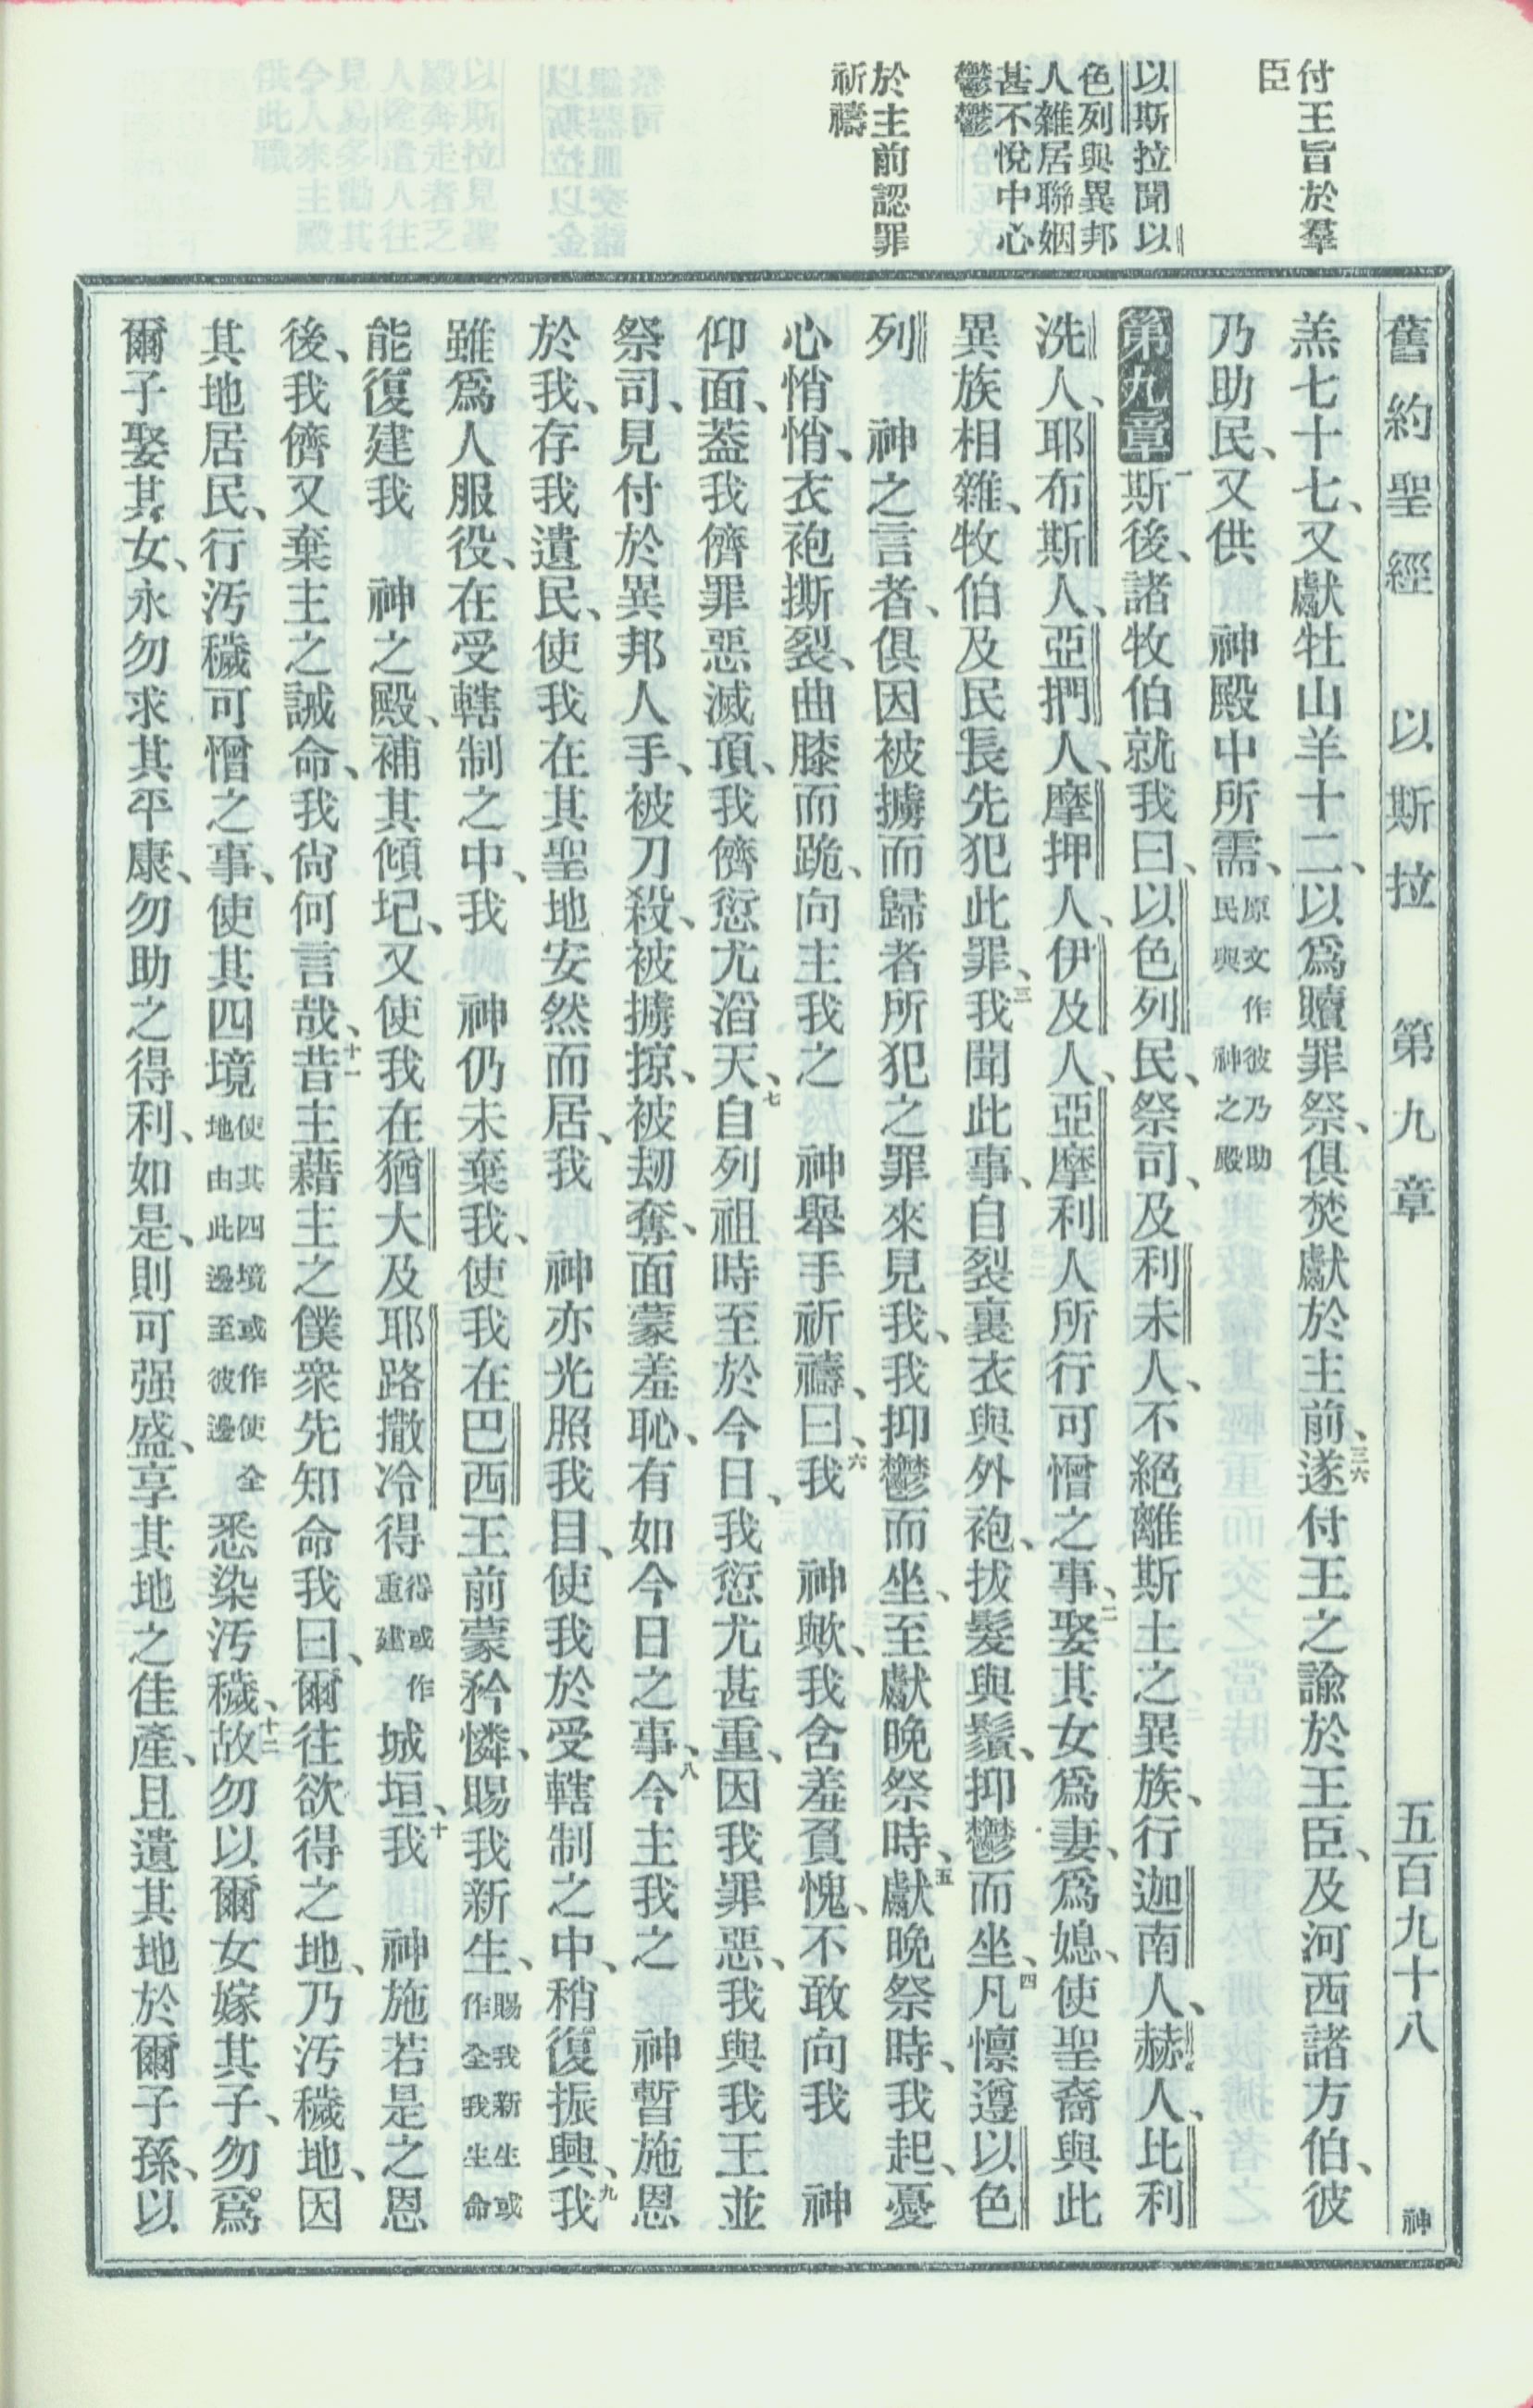 付王旨於羣
臣
以斯拉聞以
色列與異邦
人雜居聯姻
甚不悅中心
鬱鬱
於主前認罪
祈禱
舊約聖經　以斯拉　第九章　五百九十八　神
羔七十七、又獻牡山羊十二、以爲贖罪祭、俱焚獻於主前、三六遂付王之諭於王臣、及河西諸方伯、彼
乃助民、又供　神殿中所需、原文作彼乃助民與　神之殿
第九章一斯後、諸牧伯就我曰、以色列民、祭司、及利未人、不絕離斯土之異族、行迦南人、赫人、比利
洗人、耶布斯人、亞捫人、摩押人、伊及人、亞摩利人所行可憎之事、二娶其女爲妻、爲媳、使聖裔與此
異族相雜、牧伯及民長先犯此罪、三我聞此事、自裂裏衣與外袍、拔髮與鬚、抑鬱而坐、四凡懍遵以色
列　神之言者、俱因被擄而歸者所犯之罪來見我、我抑鬱而坐、至獻晚祭時、五獻晚祭時、我起、憂
心悄悄、衣袍撕裂、曲膝而跪、向主我之　神舉手祈禱、曰、六我　神歟、我含羞負愧、不敢向我　神
仰面、蓋我儕罪惡滅頂、我儕愆尤滔天、七自列祖時至於今日、我愆尤甚重、因我罪惡、我與我王並
祭司、見付於異邦人手、被刀殺、被擄掠、被刧奪、面蒙羞恥、有如今日之事、八今主我之　神暫施恩
於我、存我遺民、使我在其聖地安然而居、我　神亦光照我目、使我於受轄制之中、稍復振興、九我
雖爲人服役、在受轄制之中、我　神仍未棄我、使我在巴西王前蒙矜憐、賜我新生、賜我新生或作全我生命
能復建我　神之殿、補其傾圮、又使我在猶大及耶路撒冷得得或作重建城垣、十我　神施若是之恩
後、我儕又棄主之誡命、我尙何言哉、十一昔主藉主之僕衆先知命我曰、爾往欲得之地、乃汚穢地、因
其地居民、行汚穢可憎之事、使其四境使其四境或作使全地由此邊至彼邊悉染汚穢、十二故勿以爾女嫁其子、勿爲
爾子娶其女、永勿求其平康、勿助之得利、如是、則可强盛、享其地之佳產、且遺其地於爾子孫、以